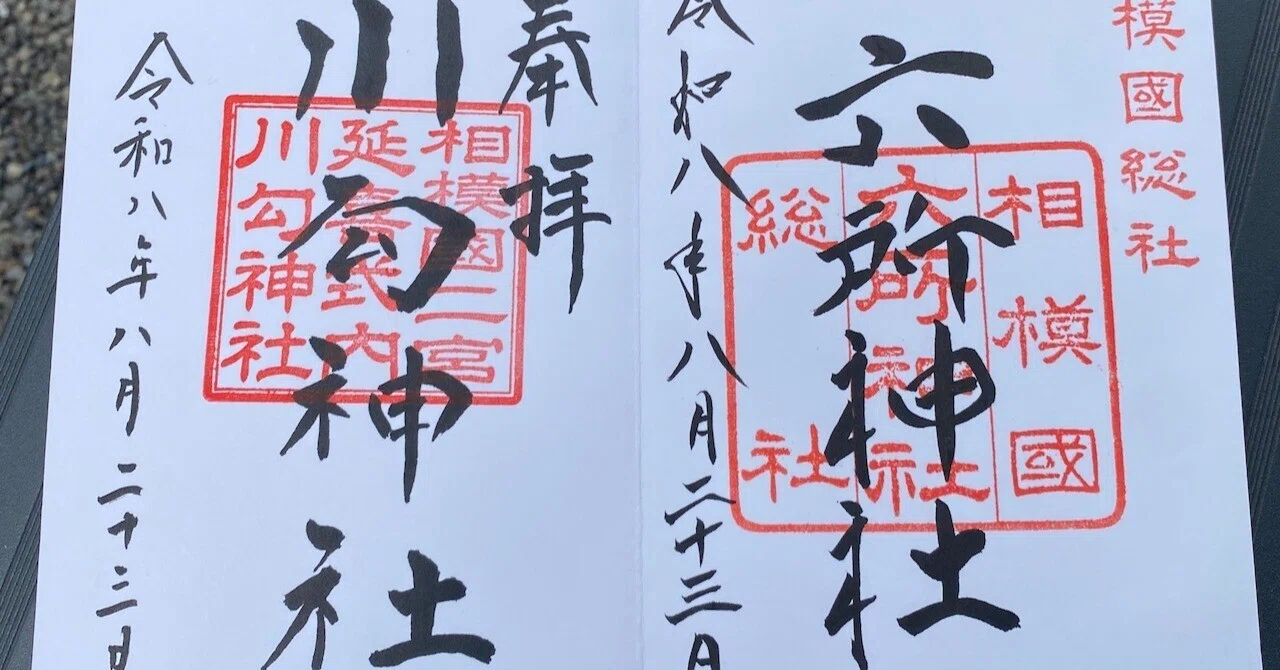 模國総社
六所神社
相模國
六所神社
総社
令和八年八月二十三日
奉拝
川勾神社
相模國二宮
延喜式内
川勾神社
令和八年八月二十三日